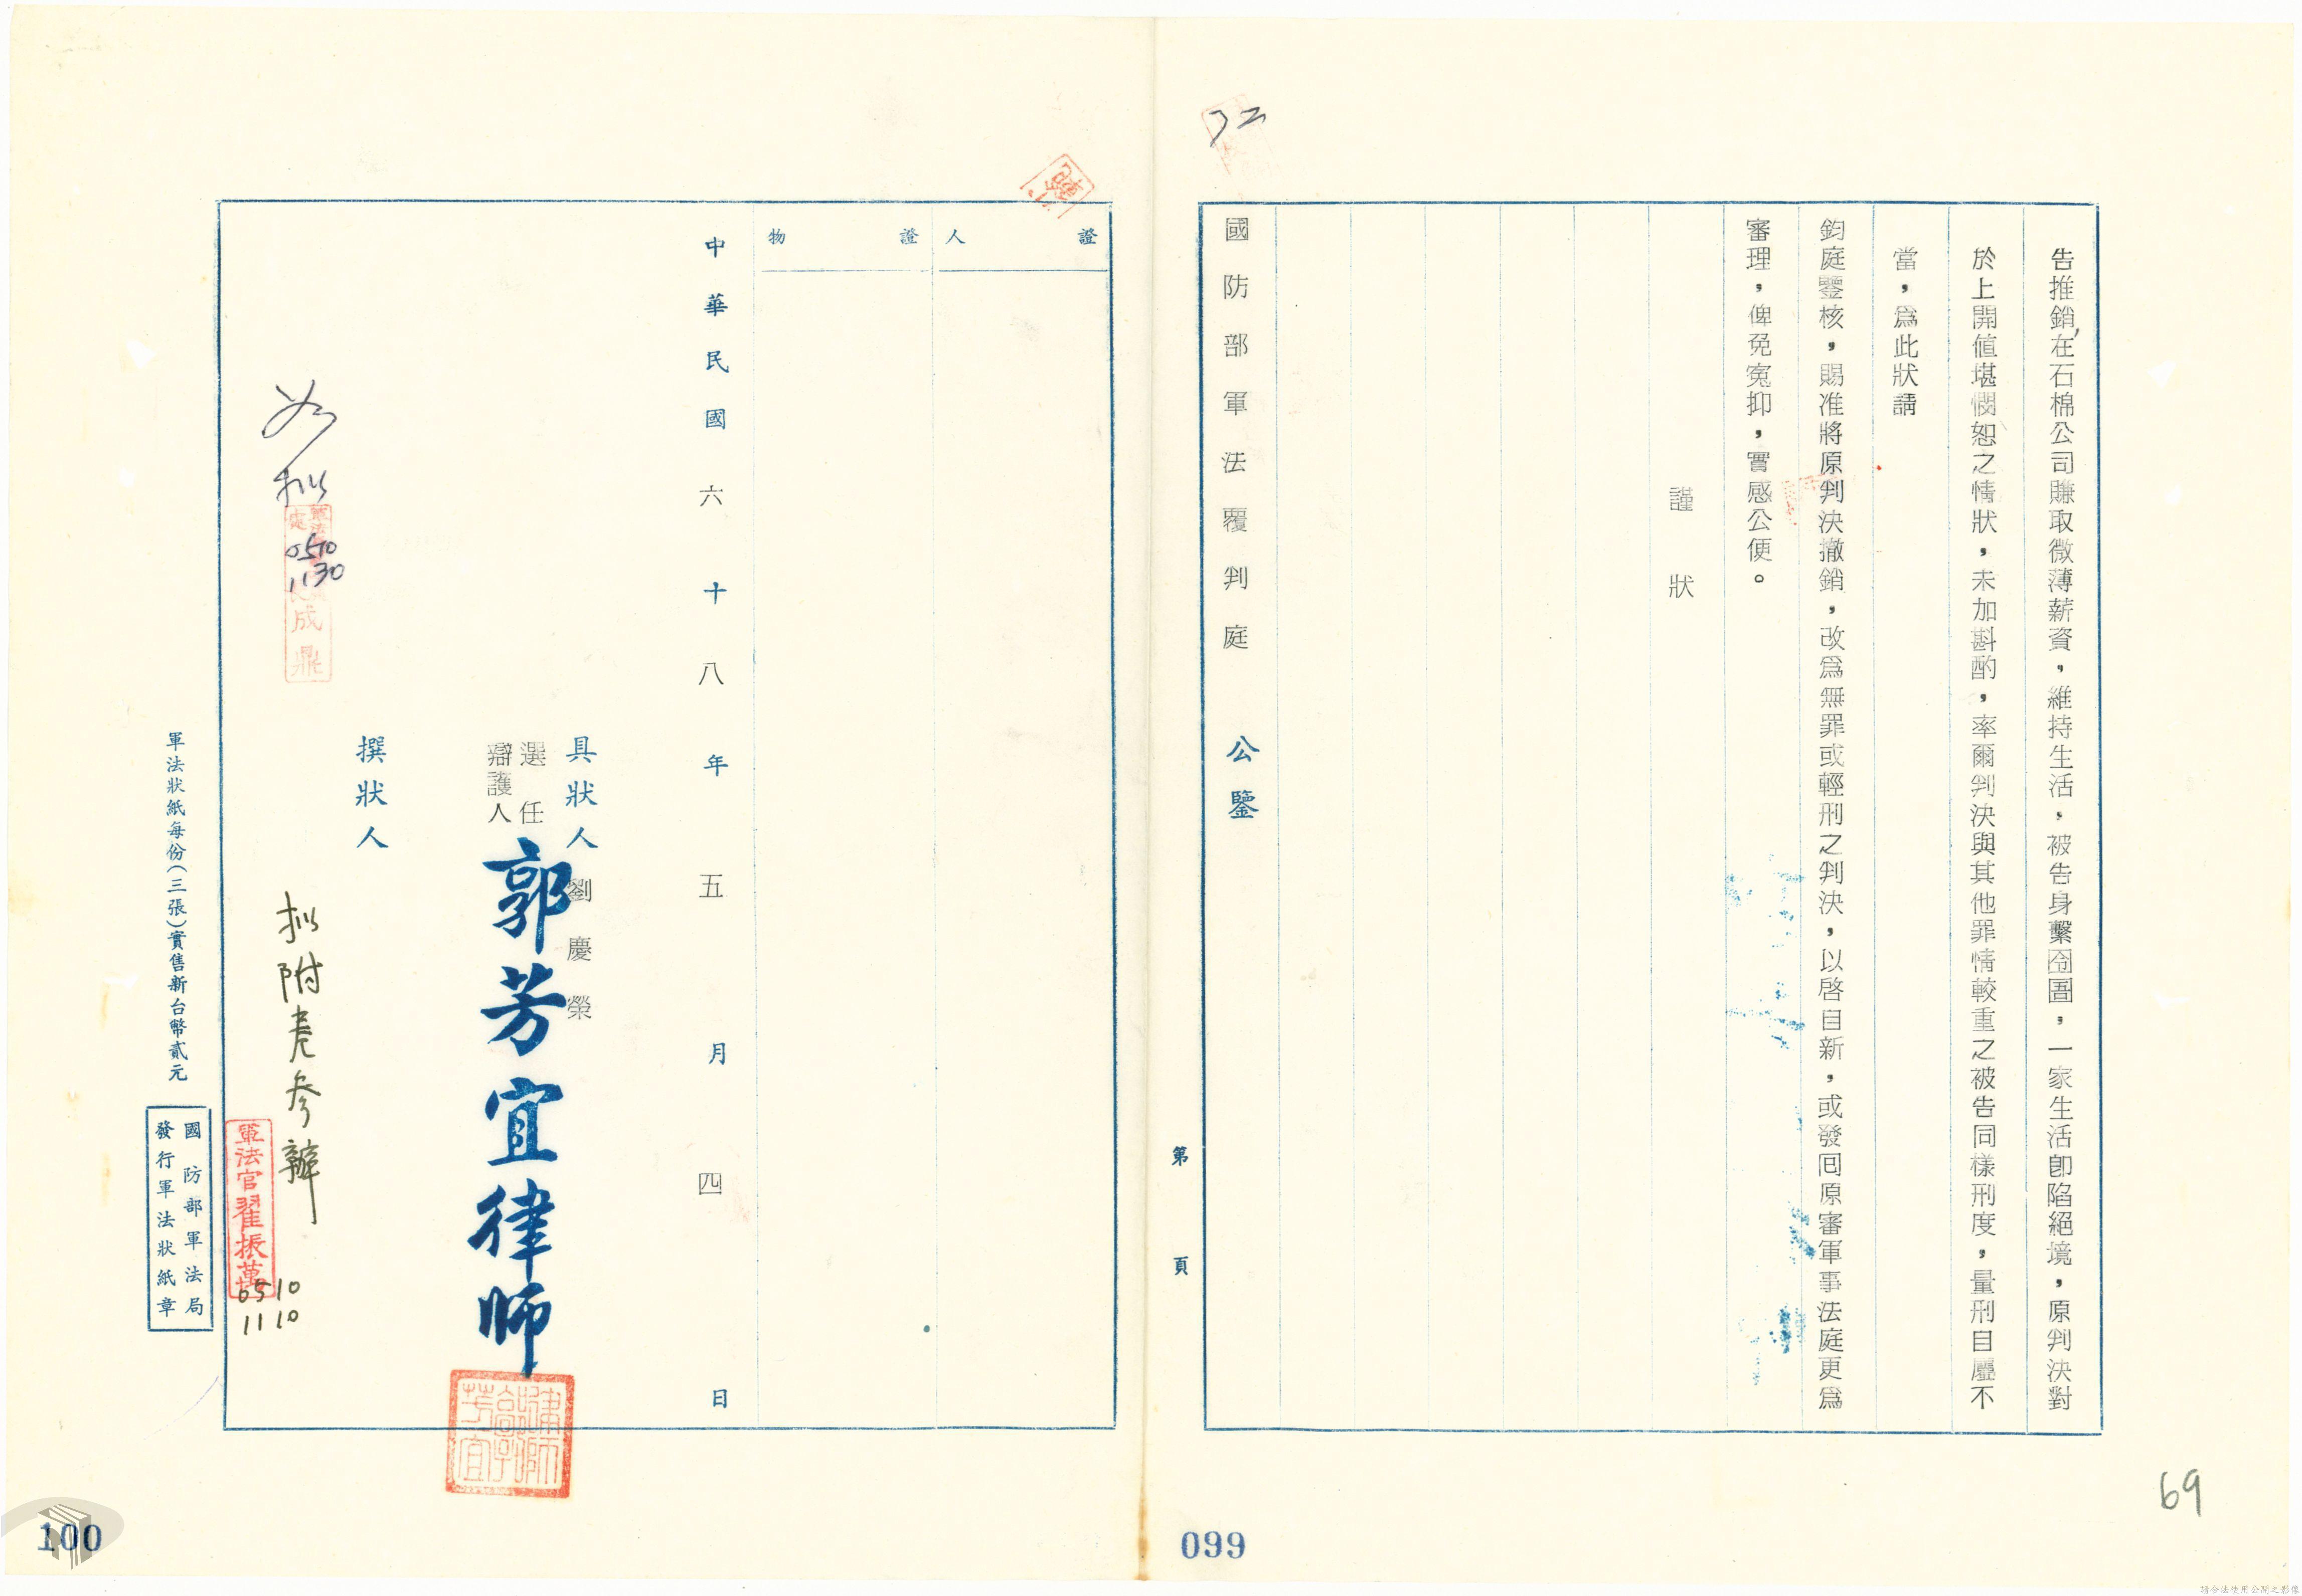 告推銷,在石棉公司賺取微薄薪資,維持生活,被告身繫囹圄,一家生活即陷絕境,原判決對
於上開値堪憫恕之情狀,未加斟酌,率爾判決與其他罪情較重之被告同樣刑度,量刑自屬不
當,爲此狀請
鈞庭鑒核,賜准將原判決撤銷,改爲無罪或輕刑之判決,以啓自新,或發回原審軍事法庭更爲
審理,俾免寃抑,實感公便。
謹狀
國防部軍法覆判庭 公鑒
第 頁
69
099
證人
證物
中華民國六十八年五月四日
具狀人 劉慶榮
選任
辯護人
郭芳宜律師
撰狀人
如擬
0510
1130
成鼎
擬附卷參辦
軍法官翟振萬
0510
1110
軍法狀紙每份(三張)實售新台幣貳元
國防部軍法局
發行軍法狀紙章
100
請合法使用公開之影像